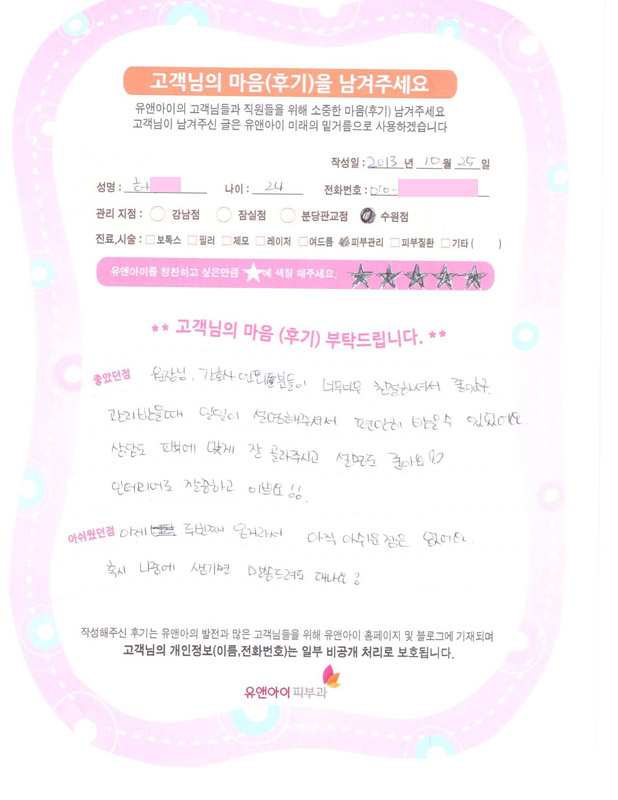 고객님의 마음(후기)을 남겨주세요
유앤아이의 고객님들과 직원들을 위해 소중한 마음(후기) 남겨주세요
고객님이 남겨주신 글은 유앤아이 미래의 밑거름으로 사용하겠습니다
작성일 : 2013 년 10 월 25 일
성명 : 허 나이 : 24 전화번호 : 010-
관리 지점 : 강남점 잠실점 분당판교점 수원점
진료,시술 : 보톡스 필러 제모 레이저 여드름 피부관리 피부질환 기타 ( )
유앤아이를 칭찬하고 싶은만큼 ★에 색칠 해주세요.
** 고객님의 마음 (후기) 부탁드립니다. **
좋았던점 원장님, 간호사 분들이 너무너무 친절하셔서 좋았구
관리받을때 일일이 설명해주셔서 편안히 받을수 있었어요.
상담도 피부에 맞게 잘 골라주시고 설명도 좋아요♡
인테리어도 깔끔하고 이뻐요!!
아쉬웠던점 이제 두번째 온거라서 아직 아쉬운 점은 없어요.
혹시 나중에 생기면 말씀드려도 대나요?
작성해주신 후기는 유앤아의 발전과 많은 고객님들을 위해 유앤아이 홈페이지 및 블로그에 기재되며
고객님의 개인정보(이름,전화번호)는 일부 비공개 처리로 보호됩니다.
유앤아이 피부과